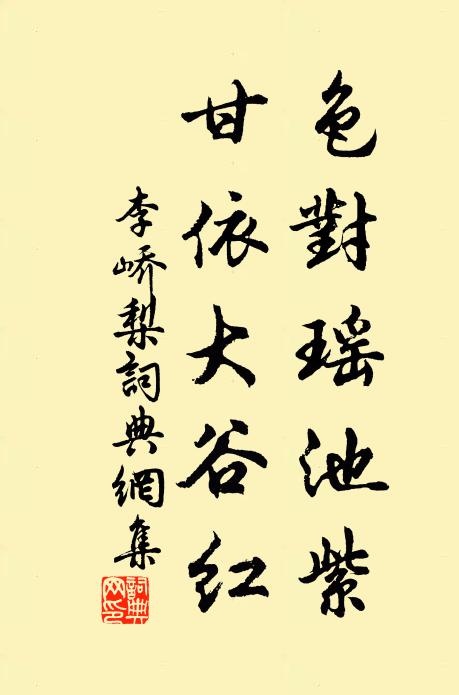 色對瑤池紫
甘依大谷紅
李嶠梨詞典網集
詞典網印